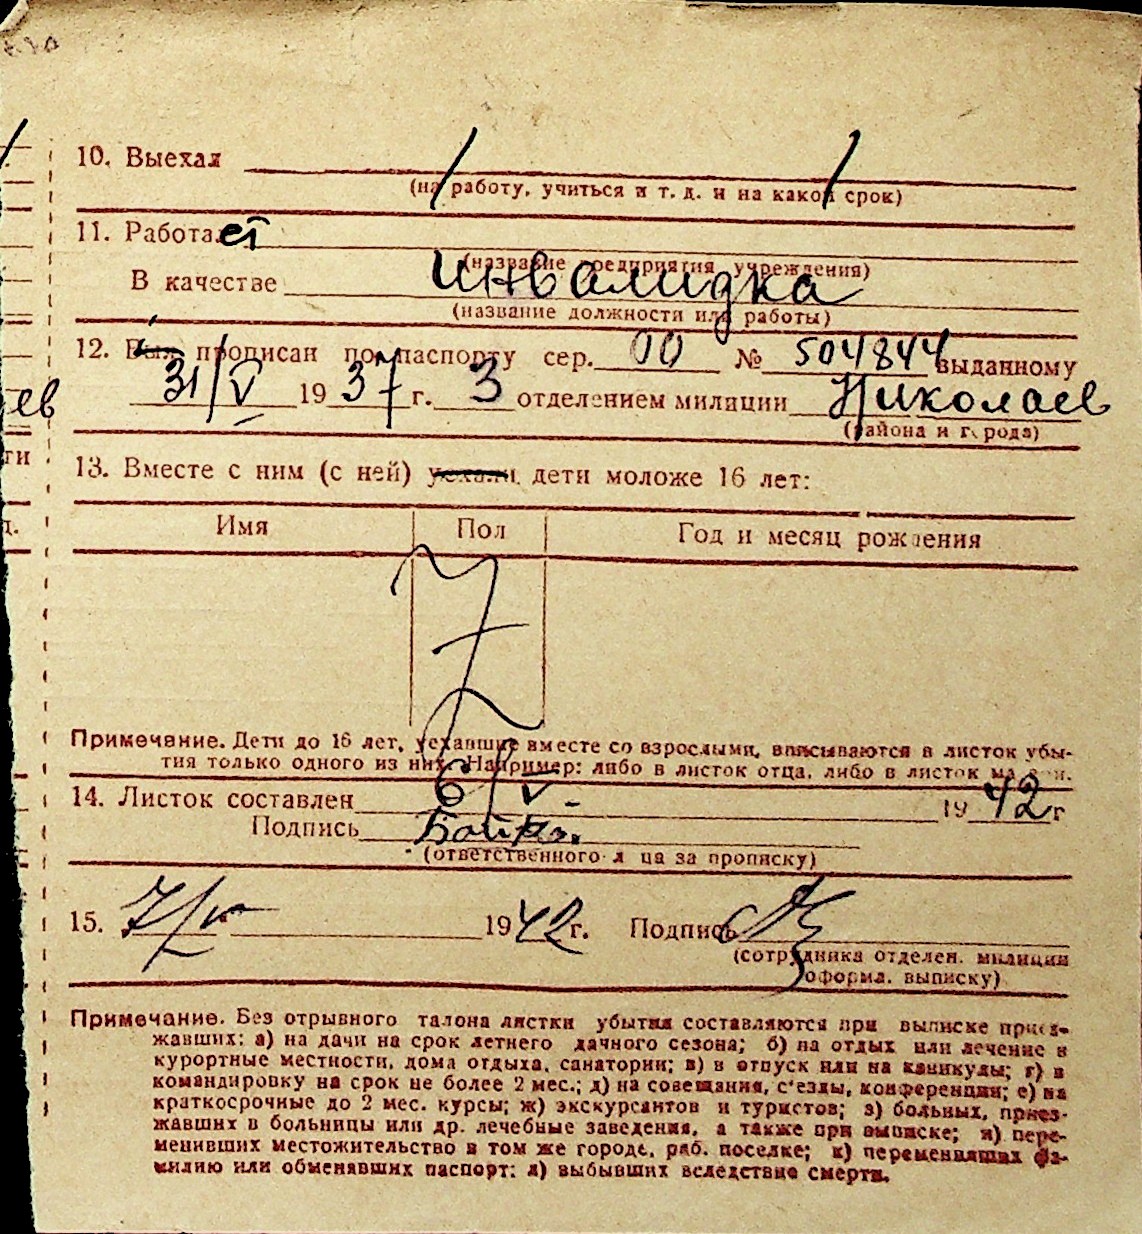 10. Выехал
(на работу, учиться и т. д. и на какой срок)
11. Работает
(название предприятия, учреждения)
В качестве инвалидка
(название должности или работы)
12. Был прописан по паспорту сер. 00 № 504844 выданному
31/V 1937 г. 3 отделением милиции Николаев
(района и города)
ев
13. Вместе с ним (с ней) уехали дети моложе 16 лет:
ти
Имя Пол Год и месяц рождения
Примечание. Дети до 16 лет, уехавшие вместе со взрослыми, вписываются в листок убы-
тия только одного из них. Например: либо в листок отца, либо в листок матери.
14. Листок составлен 6/V 1942 г
Подпись Бойко.
(ответственного лица за прописку)
15. 7/V 1942 г. Подпись
(сотрудника отделен. милиции
оформл. выписку)
Примечание. Без отрывного талона листки убытия составляются при выписке приез-
жавших: а) на дачи на срок летнего дачного сезона; б) на отдых или лечение в
курортные местности, дома отдыха, санатории; в) в отпуск или на каникулы; г) в
командировку на срок не более 2 мес.; д) на совещания, с'езды, конференции; е) на
краткосрочные до 2 мес. курсы; ж) экскурсантов и туристов; з) больных, приез-
жавших в больницы или др. лечебные заведения, а также при выписке; и) пере-
менивших местожительство в том же городе, раб. поселке; к) переменивших фа-
милию или обменявших паспорт; л) выбывших вследствие смерти.